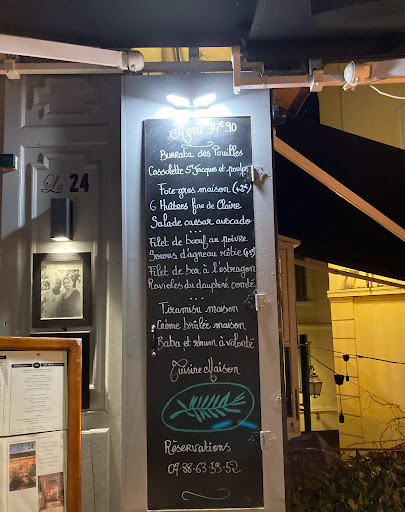 Le 24
Menu 34€90
Burrata des Pouilles
Cassolette St Jacques et poulpe
Foie gras maison (+2€)
6 Huîtres fine de Claire
Salade caesar avocado
...
Filet de bœuf au poivre
Souris d'agneau rôtie
Filet de bar à l'estragon
Ravioles du dauphiné comté
...
Tiramisu maison
Crème brûlée maison
Baba et rhum à volonté
Cuisine Maison
Réservations
07-88-63-59-52
24